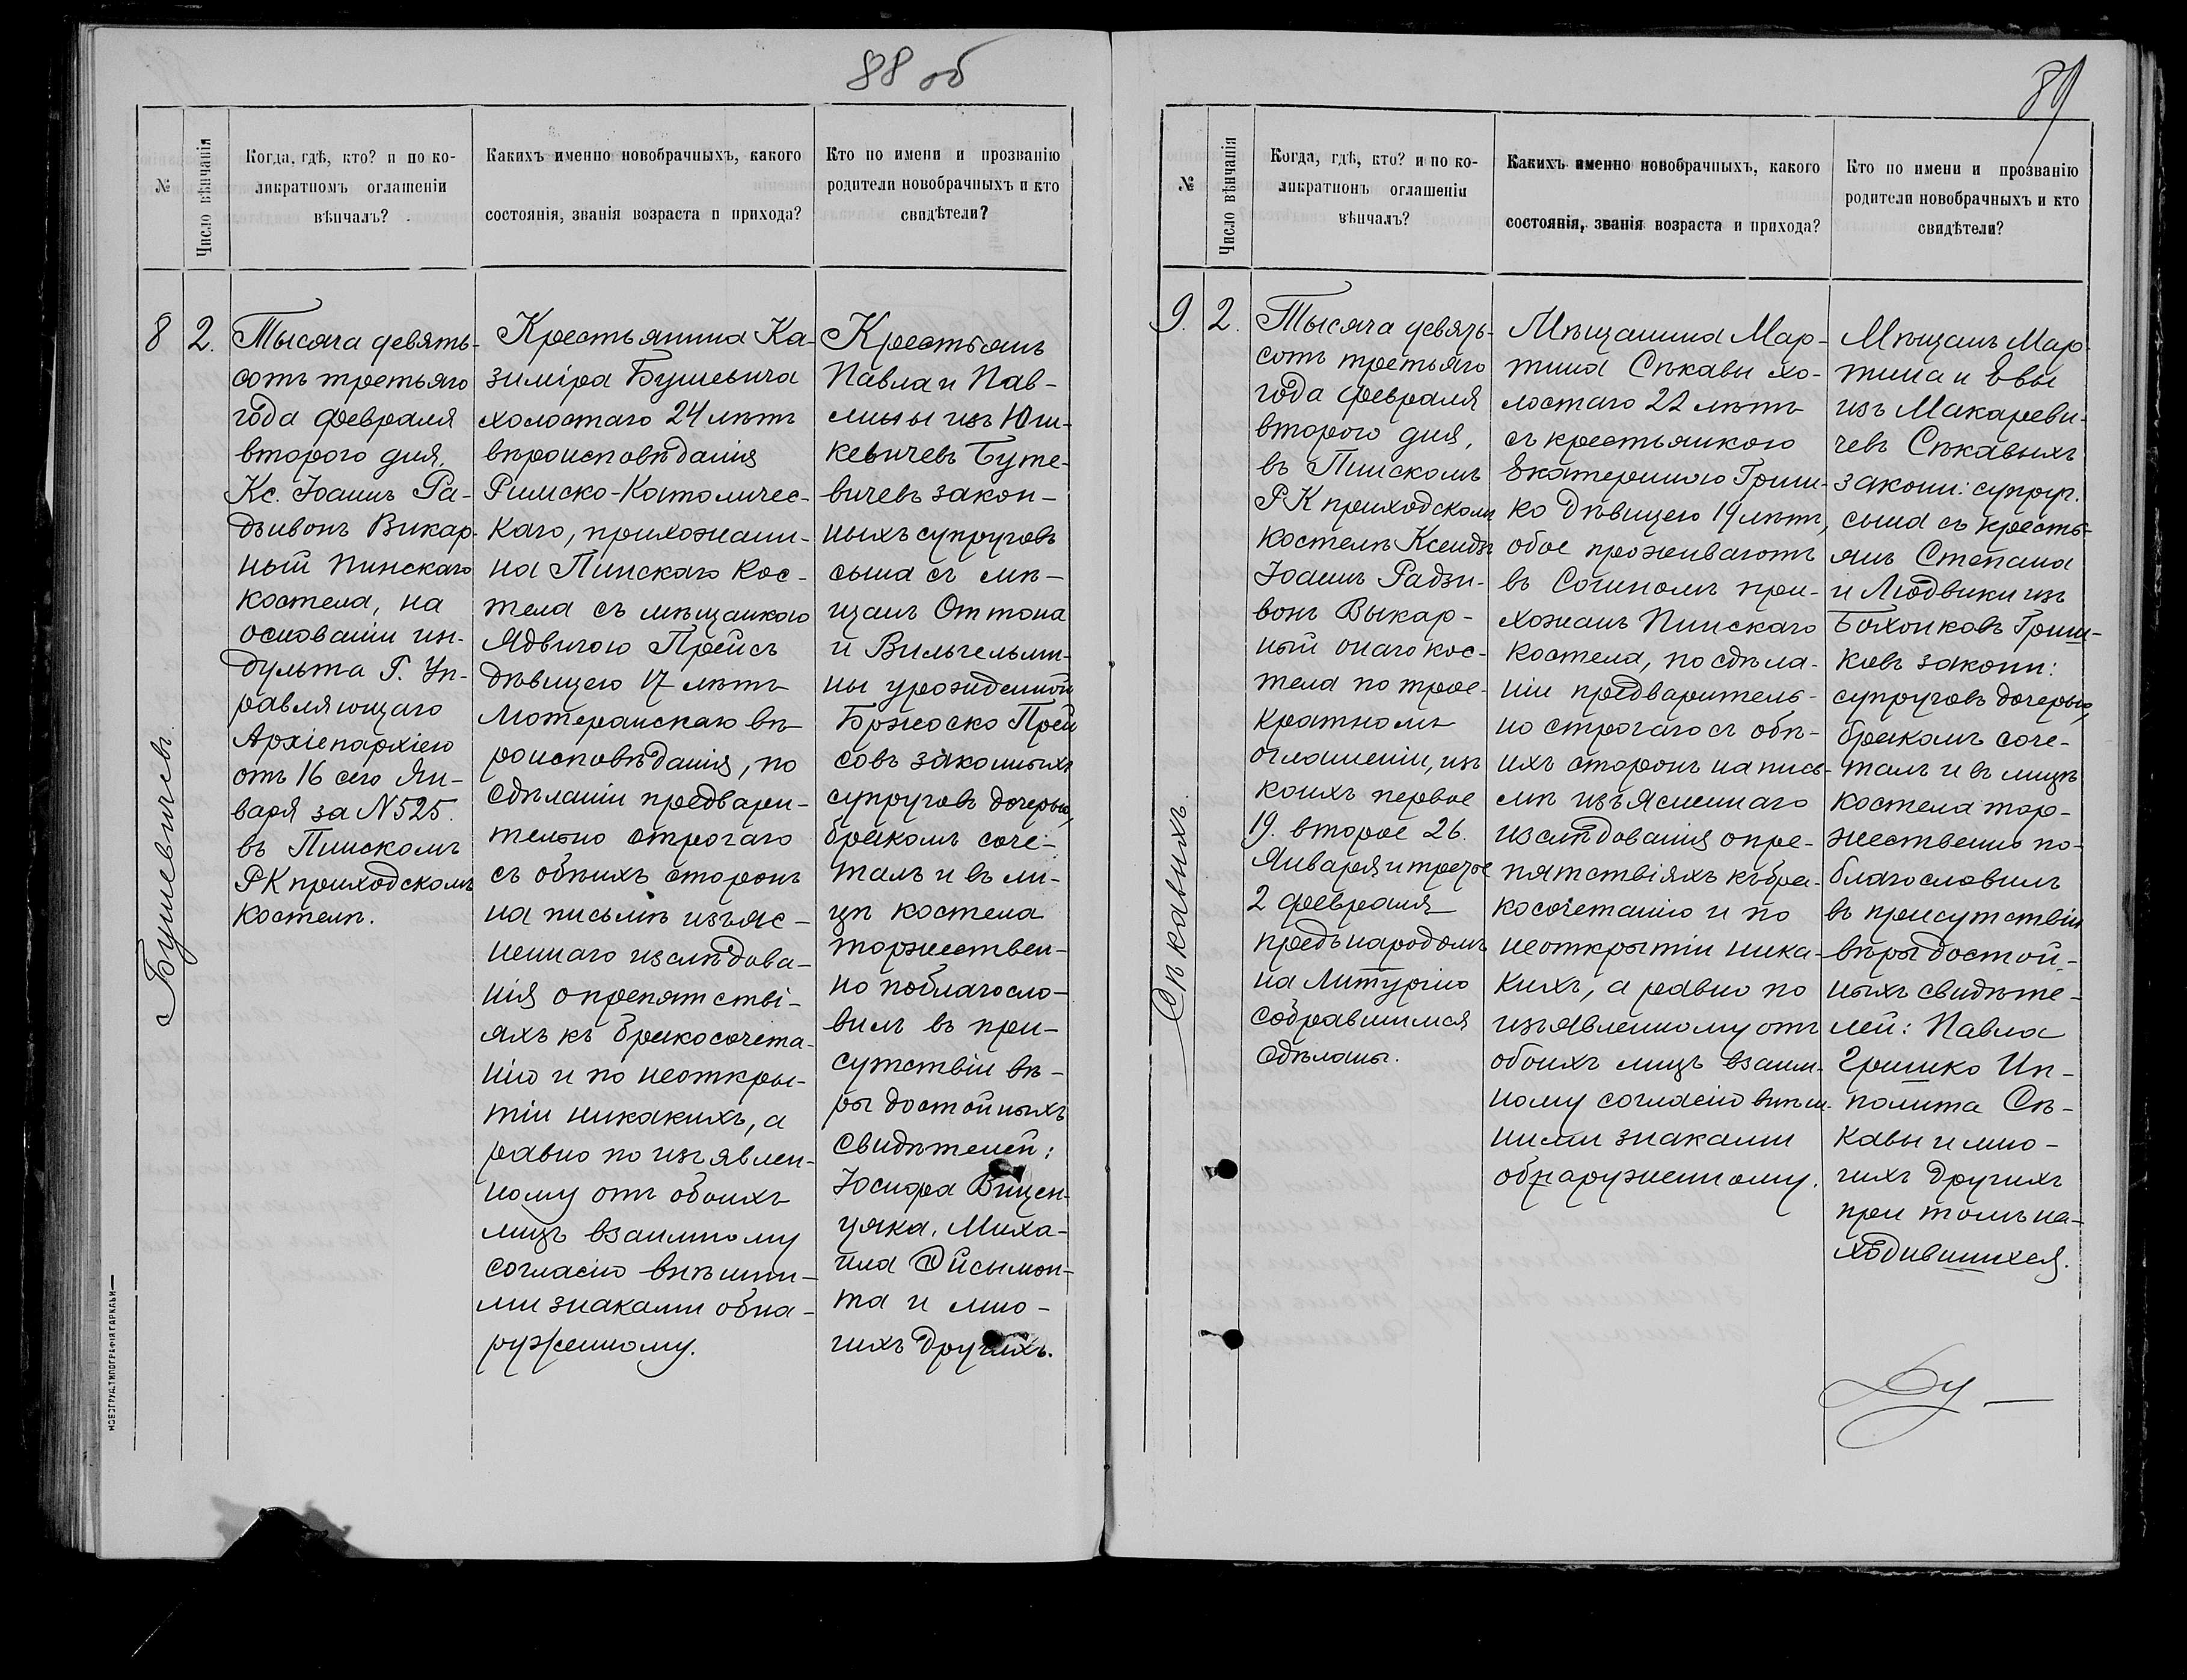 88 об
№
Число вѣнчанія
Когда, гдѣ, кто? и по ко-
ликратномъ оглашеніи
вѣнчалъ?
Какихъ именно новобрачныхъ, какого
состоянія, званія возраста и прихода?
Кто по имени и прозванію
родители новобрачныхъ и кто
свидѣтели?
8
2.
Бушевичъ.
Тысяча девять-
сотъ третьяго
года февраля
второго дня.
Кс. Іоаннъ Ра-
дзивонъ Викар-
ный Пинскаго
костела, на
основаніи ин-
дульта Г. Уп-
равляющаго
Архіепархіею
отъ 16 сего Ян-
варя за N 525.
въ Пинскомъ
РК приходскомъ
костелѣ.
Крестьянина Ка-
зиміра Бушевича
холостаго 24 лѣтъ
вѣроисповѣданія
Римско-Католичес-
каго, прихожани-
на Пинскаго Кос-
тела съ мѣщанкою
Ядвигою Прейсъ
дѣвицею 17 лѣтъ
Лютеранскаго вѣ-
роисповѣданія, по
сдѣланіи предвари-
тельно строгаго
съ обѣихъ сторонъ
на письмѣ изъяс-
неннаго изслѣдова-
нія о препятстві-
яхъ къ бракосочета-
нію и по неоткры-
тіи никакихъ, а
равно по изъявлен-
ному отъ обоихъ
лицъ взаимному
согласію внѣшни-
ми знаками обна-
руженному.
Крестьянъ
Павла и Пав-
лины изъ Юш-
кевичевъ Буше-
вичевъ закон-
ныхъ супруговъ
сына съ мѣ-
щанъ Оттона
и Вильгельми-
ны урожденной
Бржоско Прей
совъ законныхъ
супруговъ дочерью,
бракомъ соче-
талъ и въ ли-
цѣ костела
торжествен-
но поблагосло-
вилъ въ при-
сутствіи вѣ-
ры достойныхъ
свидѣтелей:
Іосифа Вицен-
уяка, Миха-
ила Ойсымон-
та и мно-
гихъ другихъ.
НОВОГРУД. ТИПОГРАФІЯ ГАРКАВИ
89
№
Число вѣнчанія
Когда, гдѣ, кто? и по ко-
ликратномъ оглашеніи
вѣнчалъ?
Какихъ именно новобрачныхъ, какого
состоянія, званія возраста и прихода?
Кто по имени и прозванію
родители новобрачныхъ и кто
свидѣтели?
9.
2.
Сѣкавыхъ.
Тысяча девять-
сотъ третьяго
года февраля
второго дня,
въ Пинскомъ
РК приходскомъ
костелѣ Ксендзъ
Іоаннъ Радзи-
вонъ Выкар-
ный онаго кос-
тела по трое-
кратномъ
оглашеніи, изъ
коихъ первое
19. второе 26.
Января и третье
2 февраля
предъ народомъ
на Литургію
собравшимся
сдѣланы.
Мѣщанина Мар-
тина Сѣкавы хо-
лостаго 22 лѣтъ
съ крестьянкою
Екатериною Гриш-
ко дѣвицею 19 лѣтъ,
обое проживаютъ
въ Сочиномъ при-
хожанъ Пинскаго
костела, по сдѣла-
ніи предваритель-
но строгаго съ обѣ-
ихъ сторонъ на пись-
мѣ изъясненнаго
изслѣдованія о пре-
пятствіяхъ къ бра-
косочетанію и по
неоткрытіи ника-
кихъ, а равно по
изъявленному отъ
обоихъ лицъ взаим-
ному согласію внѣш-
ними знаками
обнаруженному.
Мѣщанъ Мар-
тина и Евы
изъ Макареви-
чевъ Сѣкавыхъ
законн: супруг.
сына съ кресть-
янъ Степана
и Людвики изъ
Бохонковъ Гриш-
ковъ законн:
супруговъ дочерью,
бракомъ соче-
талъ и въ лицѣ
костела тор-
жественно по-
благословилъ
въ присутствіи
вѣры достой-
ныхъ свидѣте-
лей: Павла
Гришко Ип-
полита Сѣ-
кавы и мно-
гихъ другихъ
при томъ на-
ходившихся.